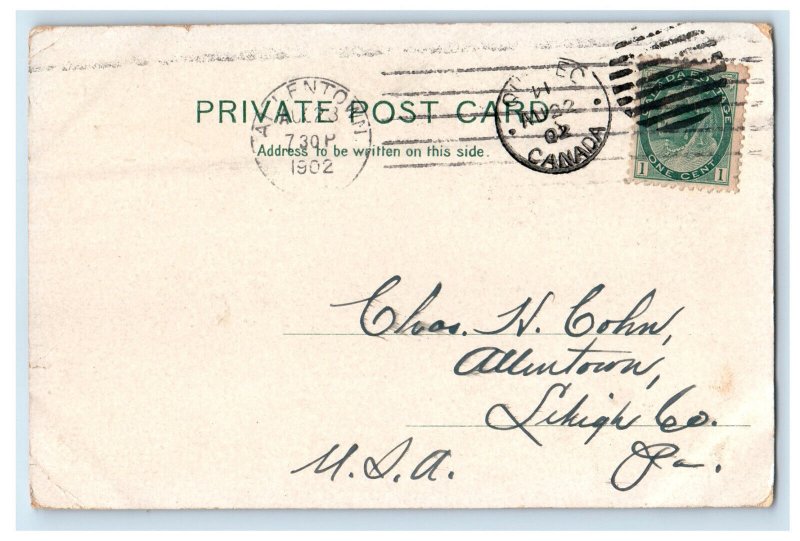 PRIVATE POST CARD
Address to be written on this side.
ALLENTOWN
23
7 30 P
1902
QUEBEC
14
AU 22
02
CANADA
CANADA POSTAGE
1 ONE CENT 1
Chas. H. Cohn,
Allentown,
Lehigh Co.
U.S.A. Pa.